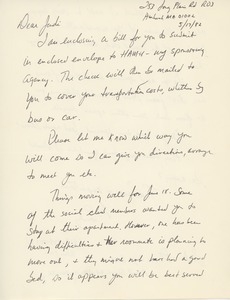 253 Long Plain Rd RD3
Amherst MA 01002
5/17/80
Dear Judi
I am enclosing a bill for you to submit
in enclosed envelope to HAMH - my sponsoring
Agency. The check will then be mailed to
you to cover your transportation costs, whether by
bus or car.
Please let me know which way you
will come so I can give you directions, arrange
to meet you etc.
Things moving well for June 18. Some
of the social club members wanted you to
stay at their apartment. However, one has been
having difficulties & the roommate is planning to
move out, & they might not have had a good
bed, so it appears you will be best served